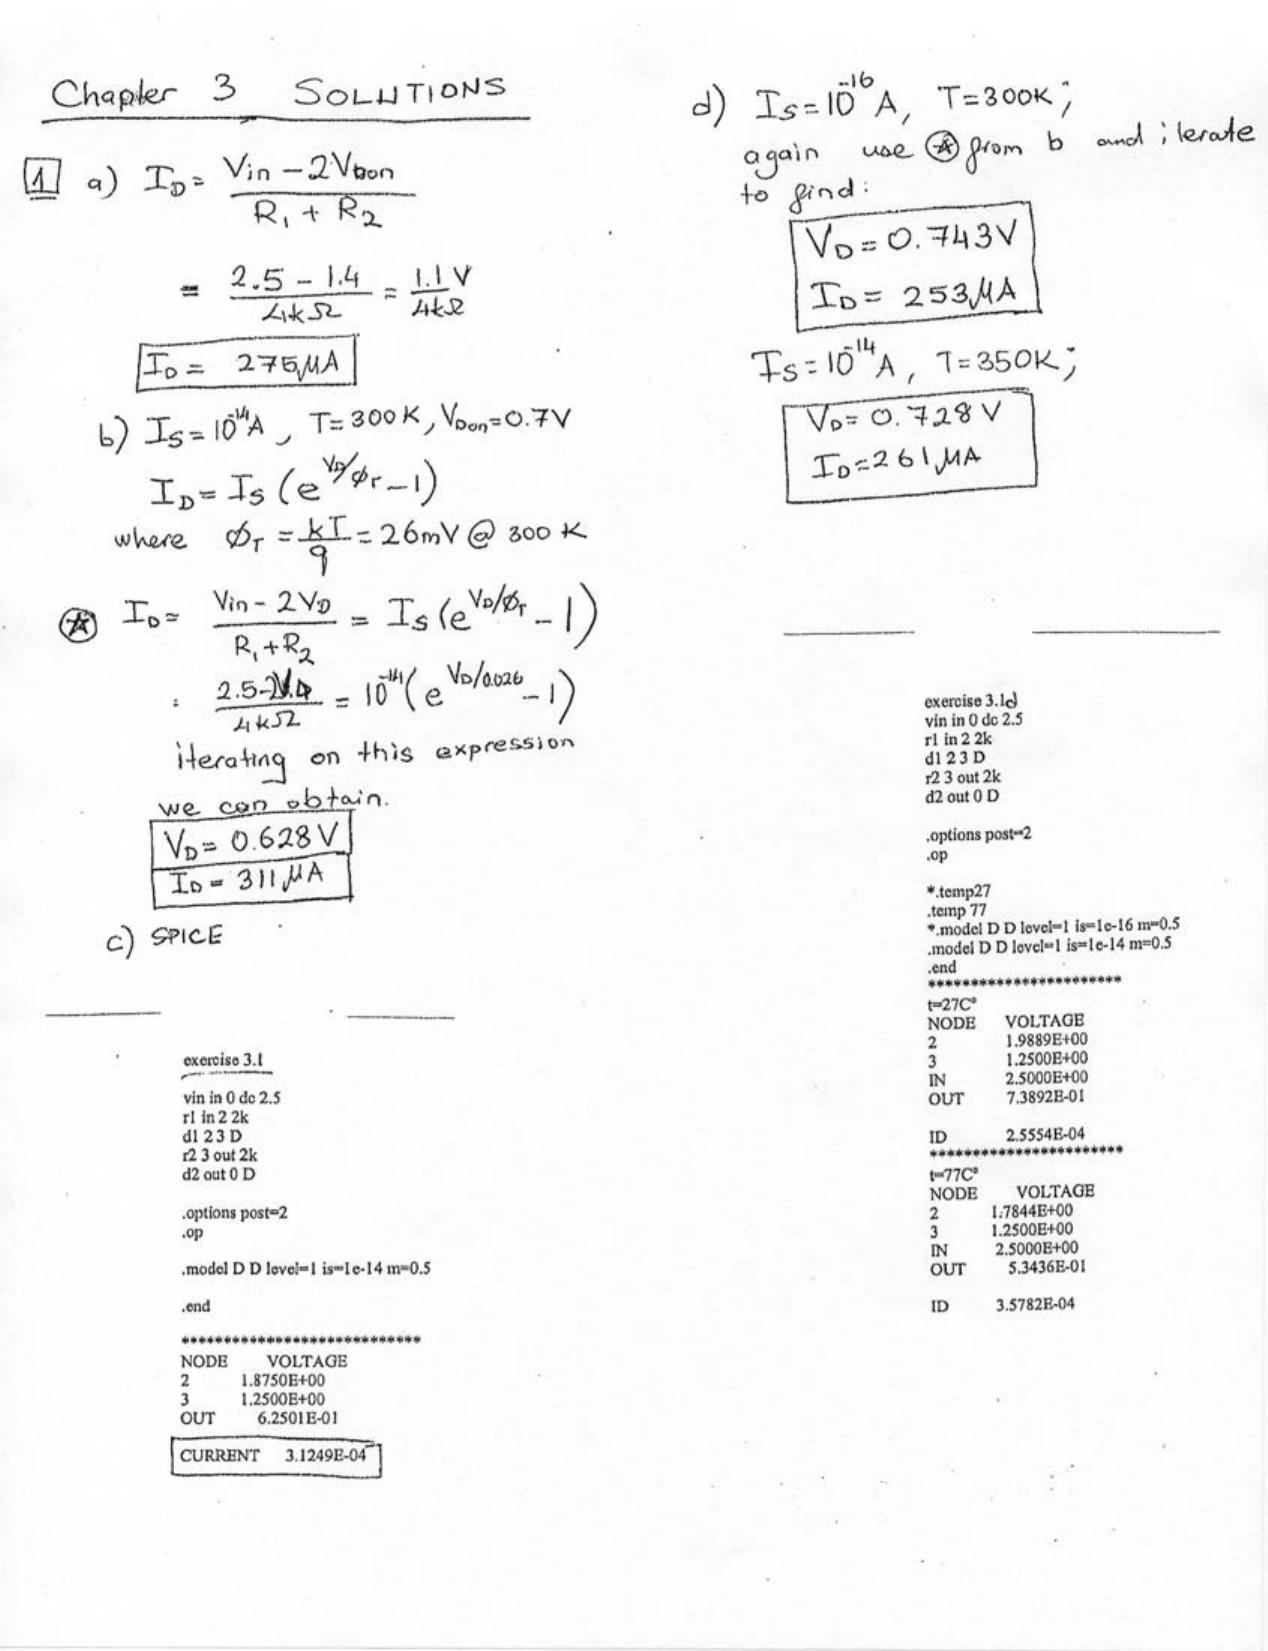 Chapter 3 SOLUTIONS
1 a) I_D = (Vin - 2V_Don) / (R_1 + R_2)
= (2.5 - 1.4) / 4kΩ = 1.1V / 4kΩ
I_D = 275μA
b) I_S = 10^-14 A, T = 300K, V_Don = 0.7V
I_D = I_S (e^(V_D/ϕ_T) - 1)
where ϕ_T = kT/q = 26mV @ 300 K
★ I_D = (Vin - 2V_D) / (R_1 + R_2) = I_S (e^(V_D/ϕ_T) - 1)
: (2.5 - 2V_D) / 4kΩ = 10^-14 (e^(V_D/0.026) - 1)
iterating on this expression
we can obtain.
V_D = 0.628 V
I_D = 311μA
c) SPICE
exercise 3.1
vin in 0 dc 2.5
r1 in 2 2k
d1 2 3 D
r2 3 out 2k
d2 out 0 D
.options post=2
.op
.model D D level=1 is=1e-14 m=0.5
.end
****************************
NODE VOLTAGE
2 1.8750E+00
3 1.2500E+00
OUT 6.2501E-01
CURRENT 3.1249E-04
d) I_S = 10^-16 A, T = 300K;
again use ★ from b and iterate
to find:
V_D = 0.743V
I_D = 253μA
I_S = 10^-14 A, T = 350K;
V_D = 0.728 V
I_D = 261μA
exercise 3.1d
vin in 0 dc 2.5
r1 in 2 2k
d1 2 3 D
r2 3 out 2k
d2 out 0 D
.options post=2
.op
*.temp27
.temp 77
*.model D D level=1 is=1e-16 m=0.5
.model D D level=1 is=1e-14 m=0.5
.end
************************
t=27C°
NODE VOLTAGE
2 1.9889E+00
3 1.2500E+00
IN 2.5000E+00
OUT 7.3892E-01
ID 2.5554E-04
************************
t=77C°
NODE VOLTAGE
2 1.7844E+00
3 1.2500E+00
IN 2.5000E+00
OUT 5.3436E-01
ID 3.5782E-04